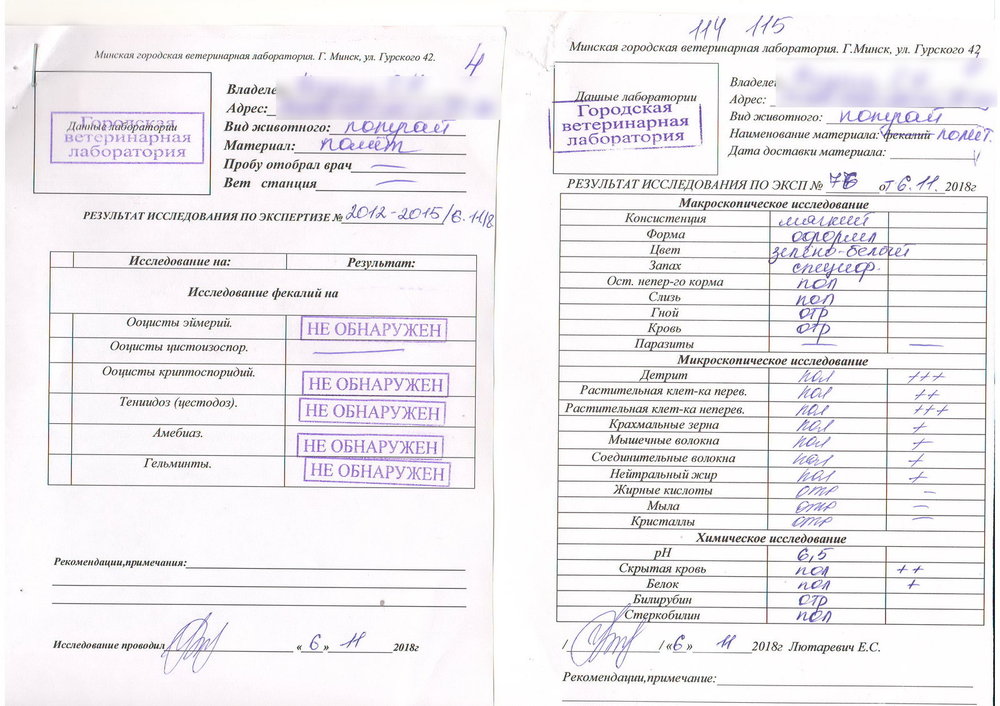 4
Минская городская ветеринарная лаборатория. Г. Минск, ул. Гурского 42.
Данные лаборатории
Городская
ветеринарная
лаборатория
Владеле
Адрес:
Вид животного: попугай
Материал: помёт
Пробу отобрал врач —
Вет станция —
РЕЗУЛЬТАТ ИССЛЕДОВАНИЯ ПО ЭКСПЕРТИЗЕ № 2012-2015/6.11/8
Исследование на: Результат:
Исследование фекалий на
Ооцисты эймерий. НЕ ОБНАРУЖЕН
Ооцисты цистоизоспор. —
Ооцисты криптоспоридий. НЕ ОБНАРУЖЕН
Тениидоз (цестодоз). НЕ ОБНАРУЖЕН
Амебиаз. НЕ ОБНАРУЖЕН
Гельминты. НЕ ОБНАРУЖЕН
Рекомендации,примечания:
Исследование проводил « 6 » 11 2018г
114 115
Минская городская ветеринарная лаборатория. Г.Минск, ул. Гурского 42
Данные лаборатории
Городская
ветеринарная
лаборатория
Владеле
Адрес:
Вид животного: попугай
Наименование материала: фекалий помёт.
Дата доставки материала:
РЕЗУЛЬТАТ ИССЛЕДОВАНИЯ ПО ЭКСП № 76 от 6.11. 2018г
Макроскопическое исследование
Консистенция мягкий
Форма оформл
Цвет зелено-белый
Запах специф.
Ост. непер-го корма пол
Слизь пол
Гной отр
Кровь отр
Паразиты — —
Микроскопическое исследование
Детрит пол +++
Растительная клет-ка перев. пол ++
Растительная клет-ка неперев. пол +++
Крахмальные зерна пол +
Мышечные волокна пол +
Соединительные волокна пол +
Нейтральный жир пол +
Жирные кислоты отр —
Мыла отр —
Кристаллы отр —
Химическое исследование
рН 6,5
Скрытая кровь пол ++
Белок пол +
Билирубин отр
Стеркобилин пол
/ / « 6 » 11 2018г Лютаревич Е.С.
Рекомендации,примечание: